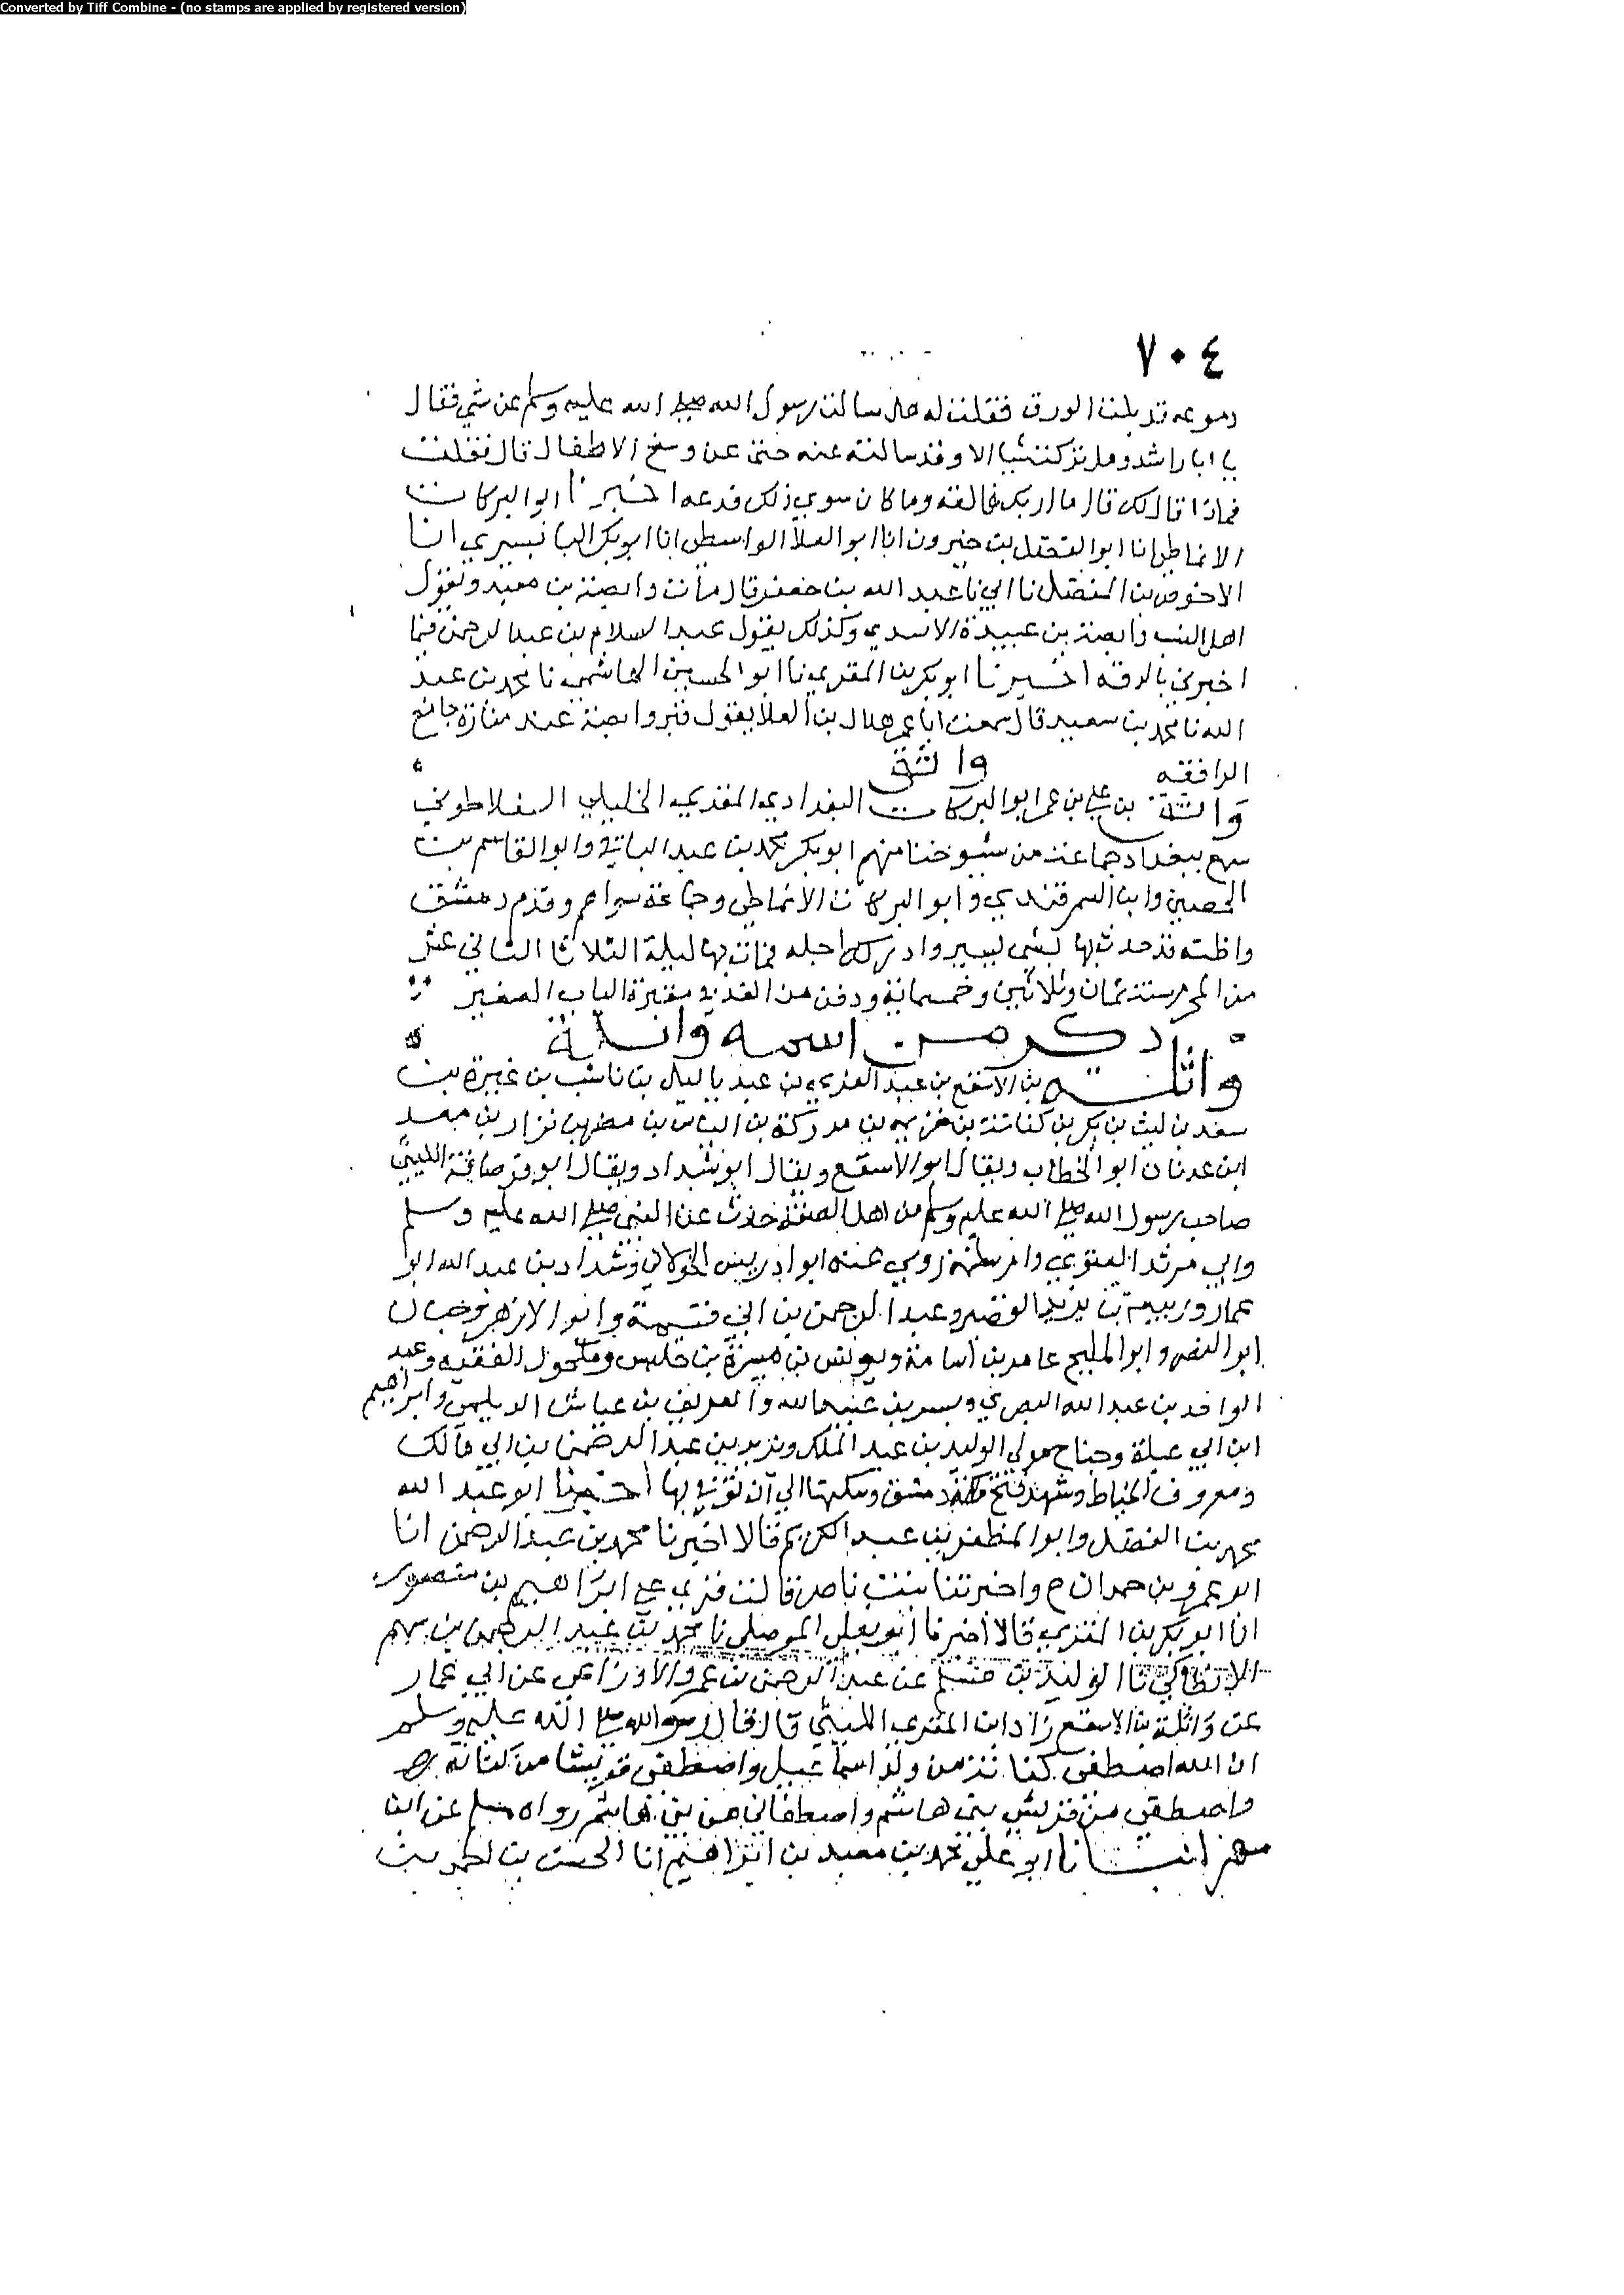 Converted by Tiff Combine - (no stamps are applied by registered version)
٧٠٤
دموعه قد بلت الورق فقلت له هل سالت رسول الله صلى الله عليه وسلم عن شي فقال
يا ابا راشد وهل تركت شيا الا وقد سالته عنه حتى عن وسخ الاظفار قال فقلت
فماذا قال لك قال ما اربك فالقه وما كان سوي ذلك فدعه اخبرنا ابو البركات
الانماطي انا ابو الفضل بن خيرون انا ابو العلا الواسطي انا ابو بكر البابسيري انا
الاحوص بن المفضل نا ابي نا عبد الله بن جعفر قال مات وابصة بن معبد ويقول
اهل النسب وابصة بن عبيدة الاسدي وكذلك يقول عبد السلام بن عبد الرحمن فيما
اخبرني بالرقه اخبرنا ابو بكر بن المقري نا ابو الحسين الهاشمي نا محمد بن عبد
الله نا محمد بن سعيد قال سمعت ابا عمر هلال بن العلا يقول قبر وابصة عند منارة جامع
الرافقه
واثق
واثق بن علي بن عمر ابو البركات البغدادي المقري الخليلي السقلاطوني
سمع ببغداد جماعة من شيوخنا منهم ابو بكر محمد بن عبد الباقي وابو القاسم بن
الحصين وابن السمرقندي وابو البركات الانماطي وجماعة سواهم وقدم دمشق
واظنه قد حدث بها بشي يسير وادركه اجله فمات بها ليلة الثلاثا الثاني عشر
من المحرم سنة ثمان وثلاثين وخمسمائة ودفن من الغد في مقبرة الباب الصغير
ذكر من اسمه واثلة
واثلة بن الاسقع بن عبد العزي بن عبد ياليل بن ناشب بن غيرة بن
سعد بن ليث بن بكر بن كنانة بن خزيمه بن مدركة بن الياس بن مضر بن نزار بن معد
ابن عدنان ابو الخطاب ويقال ابو الاسقع ويقال ابو شداد ويقال ابو قرصافة الليثي
صاحب رسول الله صلى الله عليه وسلم من اهل الصفة حدث عن النبي صلى الله عليه وسلم
وابي مرثد الغنوي وام سلمة روي عنه ابو ادريس الخولاني وشداد بن عبد الله ابو
عمار وربيعة بن يزيد القصير وعبد الرحمن بن ابي قسيمة وابو الازهر وحيان
ابو النضر وابو المليح عامر بن اسامة ويونس بن ميسرة بن حلبس ومكحول الفقيه وعبد
الواحد بن عبد الله البصري وبسر بن عبيد الله والغريف بن عياش الديلمي وابراهيم
ابن ابي عبلة وجناح مولي الوليد بن عبد الملك ويزيد بن عبد الرحمن بن ابي مالك
ومعروف الخياط وشهد فتح دمشق وسكنها الي ان توفي بها اخبرنا ابو عبد الله
محمد بن الفضل وابو المظفر بن عبد الكريم قالا اخبرنا محمد بن عبد الرحمن انا
ابو عمرو بن حمدان ح واخبرتنا بنت ناصر قالت قري علي ابراهيم بن منصور
انا ابو بكر بن المقري قالا اخبرنا ابو يعلى الموصلي نا محمد بن عبد الرحمن بن سهم
الانطاكي نا الوليد بن مسلم عن عبد الرحمن بن عمرو الاوزاعي عن ابي عمار
عن واثلة بن الاسقع زاد ابن المقري الليثي قال قال رسول الله صلى الله عليه وسلم
ان الله اصطفى كنانة من ولد اسماعيل واصطفى قريشا من كنانة
واصطفى من قريش بني هاشم واصطفاني من بني هاشم رواه مسلم عن ابن
مهران انا ابو علي محمد بن سعيد بن ابراهيم انا الحسن بن احمد بن